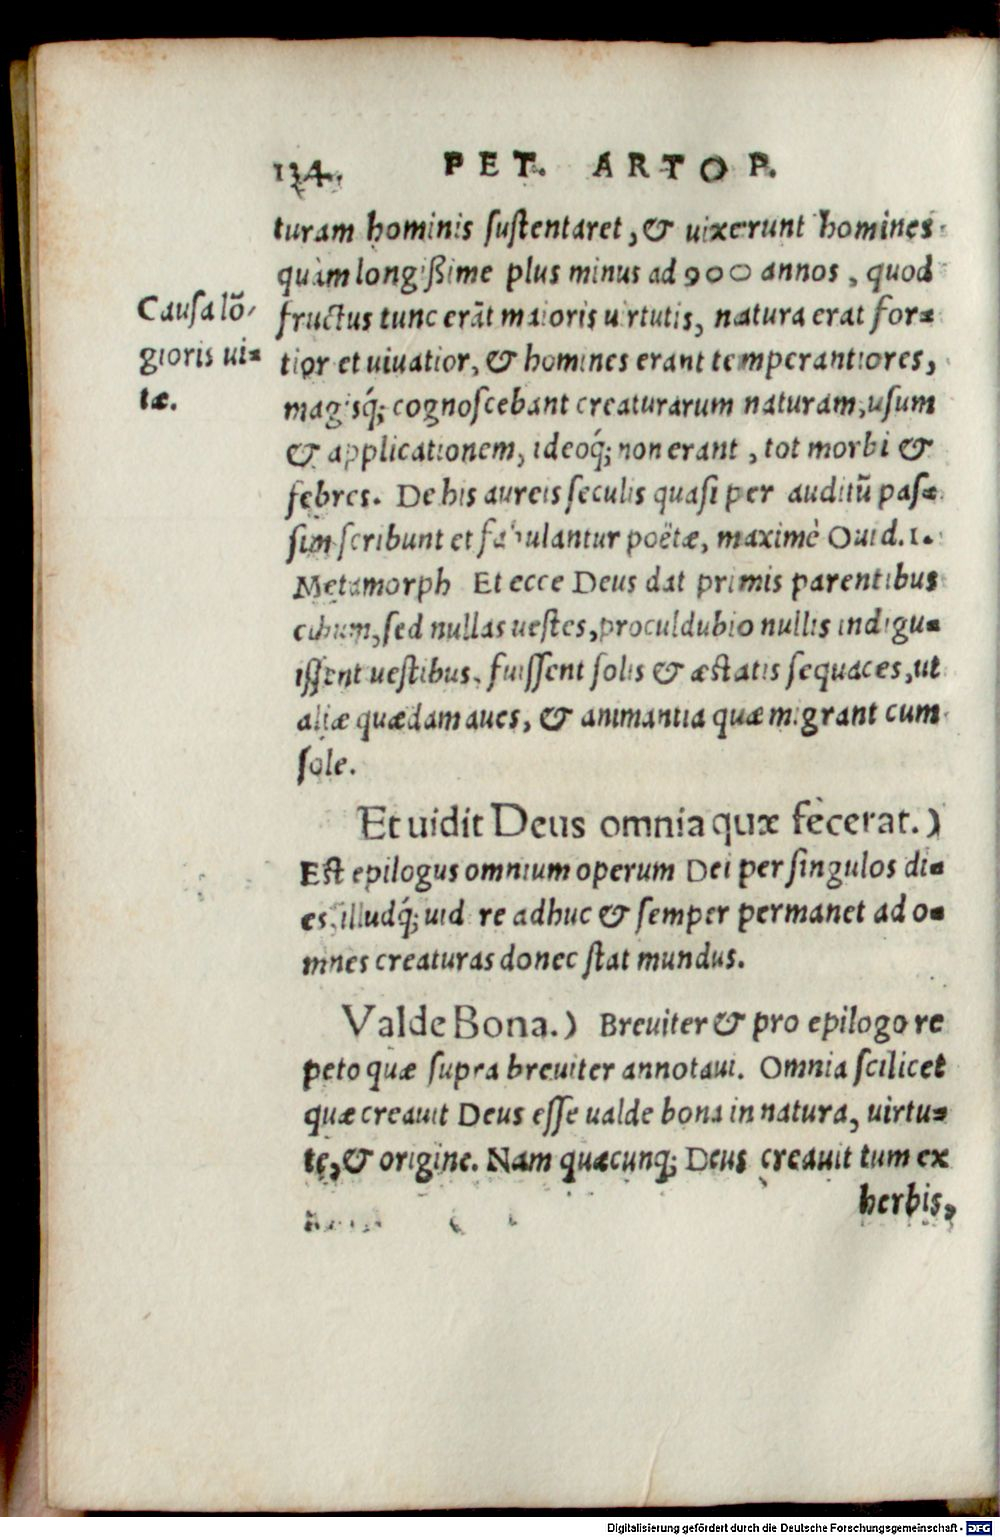 134. PET. ARTOP.
turam hominis ſuſtentaret, & uixerunt homines
quàm longißime plus minus ad 900 annos, quod
Cauſa lõ-
fructus tunc erãt maioris uirtutis, natura erat for=
gioris ui=
tior et uiuatior, & homines erant temperantiores,
tæ.
magisq́; cognoſcebant creaturarum naturam, uſum
& applicationem, ideoq́; non erant, tot morbi &
febres. De his aureis ſeculis quaſi per auditũ paſ=
ſim ſcribunt et fabulantur poëtæ, maximè Ouid. 1.
Metamorph Et ecce Deus dat primis parentibus
cibum, ſed nullas ueſtes, proculdubio nullis indigu=
iſſent ueſtibus, fuiſſent ſolis & æſtatis ſequaces, ut
aliæ quædam aues, & animantia quæ migrant cum
ſole.
Et uidit Deus omnia quæ fecerat.)
Eſt epilogus omnium operum Dei per ſingulos di=
es, illudq́; uidere adhuc & ſemper permanet ad o=
mnes creaturas donec ſtat mundus.
Valde Bona.) Breuiter & pro epilogo re
peto quæ ſupra breuiter annotaui. Omnia ſcilicet
quæ creauit Deus eſſe ualde bona in natura, uirtu=
te, & origine. Nam quæcunq; Deus creauit tum ex
herbis,
Digitalisierung gefördert durch die Deutsche Forschungsgemeinschaft - DFG